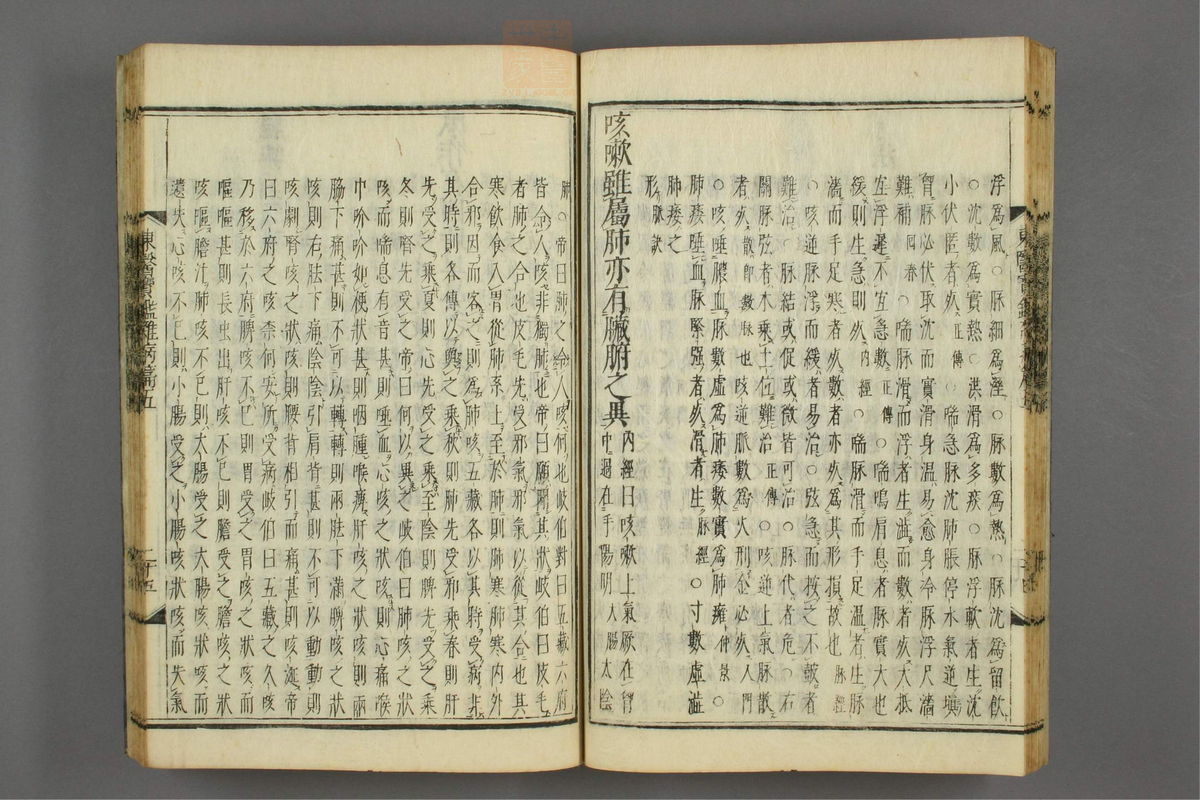 浮爲風○脉細爲溼○脉數爲熱○脉沈爲留飮
○沈數爲實熱○洪滑爲多痰○脉浮軟者生沈
小伏匿者死正傳○喘急脉沈肺脹停水氣逆塡
胷脉必伏取沈而實滑身温易愈身冷脉浮尺濇
難補回春○喘脉滑而浮者生濇而數者死大抵
宜浮遲不宜急數正傳○喘鳴肩息者脉實大也
緩則生急則死內經○喘脉滑而手足温者生脉
濇而手足寒者死數者亦死爲其形損故也脉經
○咳逆脉浮而緩者易治○弦急而按之不鼓者
難治○脉結或促或微皆可治○脉代者危○右
關脉弦者木乘土位難治正傳○咳逆上氣脉散
者死散卽數脉也咳逆脉數爲火刑金必死入門
○咳唾膿血脉數虛爲肺痿數實爲肺癰仲景○
肺痿唾血脉緊强者死滑者生脉經○寸數虛濇
肺痿之
形脉訣
咳嗽雖屬肺亦有臟腑之異內經曰咳嗽上氣厥在胷
中過在手陽明大腸太陰
肺○帝曰肺之令人咳何也岐伯對曰五藏六府
皆令人咳非獨肺也帝曰願聞其狀岐伯曰皮毛
者肺之合也皮毛先受邪氣邪氣以從其合也其
寒飮食入胃從肺系上至於肺則肺寒肺寒內外
合邪因而客之則爲肺咳五藏各以其時受病非
其時則各傳以與之乘秋則肺先受邪乘春則肝
先受之乘夏則心先受之乘至陰則脾先受之乘
冬則腎先受之帝曰何以異之岐伯曰肺咳之狀
咳而喘息有音甚則唾血心咳之狀咳則心痛喉
中吤吤如梗狀甚則咽腫喉痺肝咳之狀咳則兩
脇下痛甚則不可以轉轉則兩胠下滿脾咳之狀
咳則右胠下痛陰陰引肩背甚則不可以動動則
咳劇腎咳之狀咳則腰背相引而痛甚則咳涎帝
曰六府之咳柰何安所受病岐伯曰五藏之久咳
乃移於六府脾咳不已則胃受之胃咳之狀咳而
嘔嘔甚則長虫出肝咳不已則膽受之膽咳之狀
咳嘔膽汁肺咳不已則大腸受之大腸咳狀咳而
遺失心咳不已則小腸受之小腸咳狀咳而失氣
東醫寶鑑雜病篇五
二十五